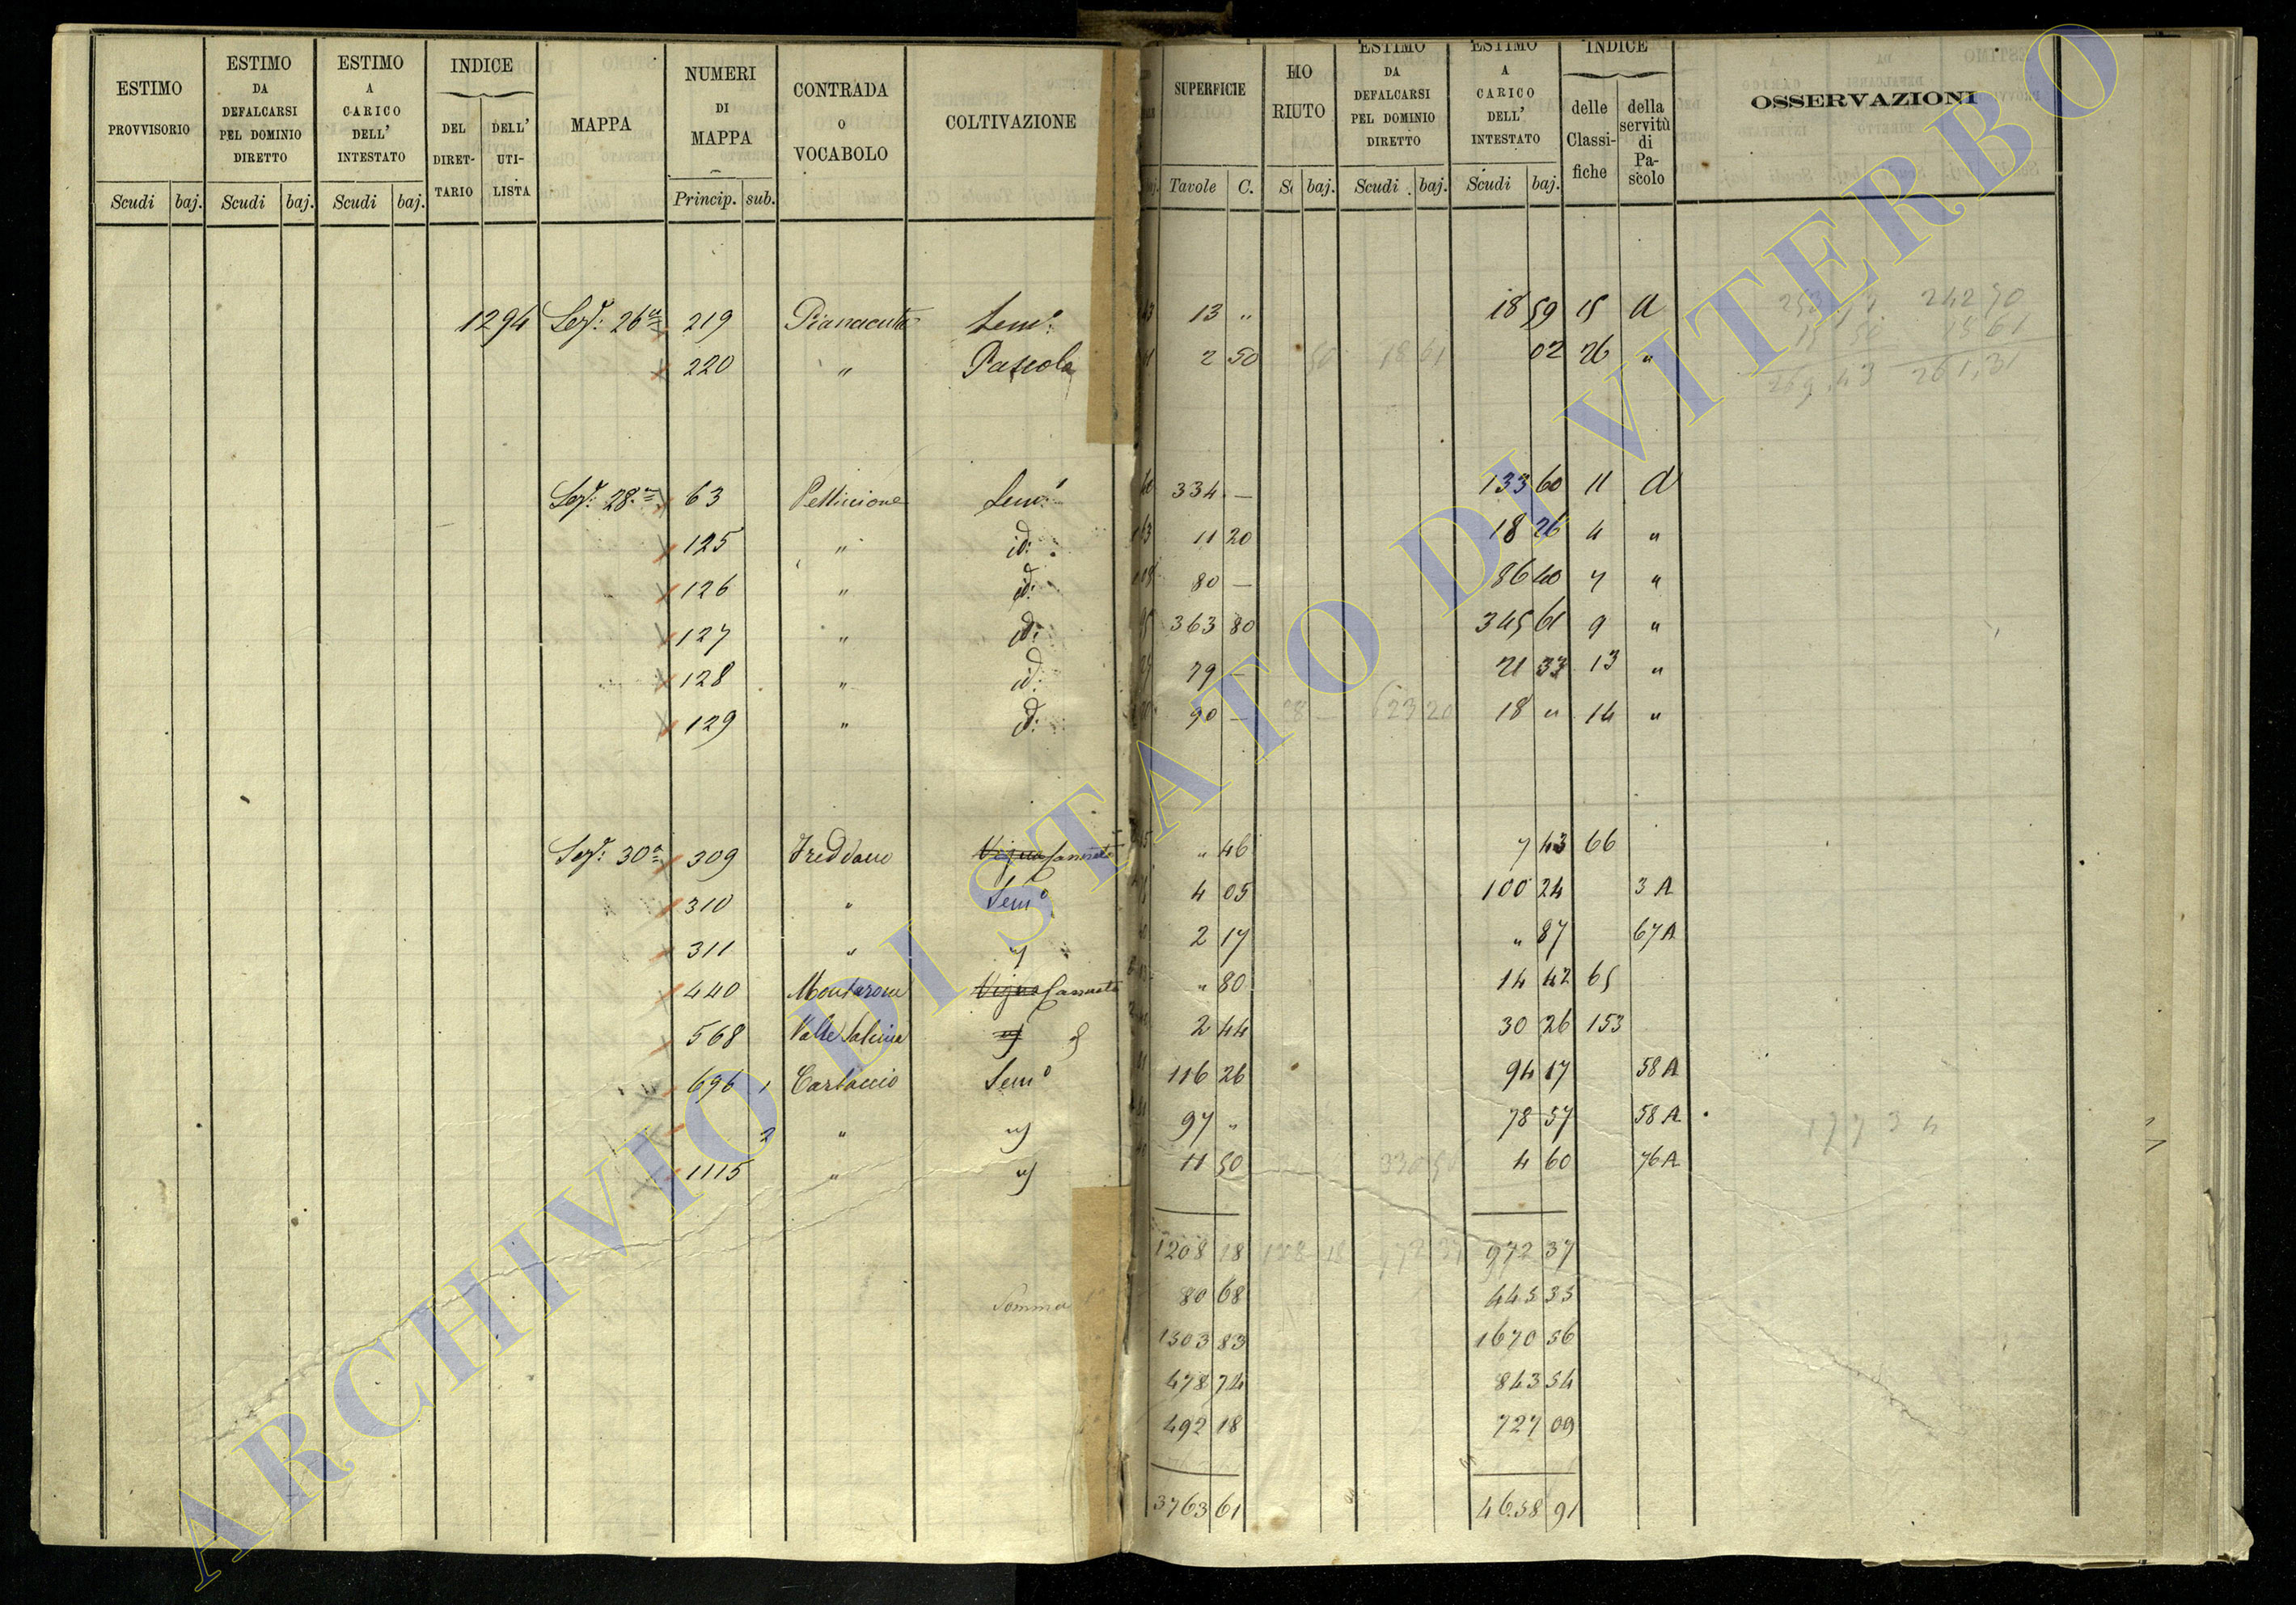 ESTIMO PROVVISORIO | ESTIMO DA DEFALCARSI PEL DOMINIO DIRETTO | ESTIMO A CARICO DELL' INTESTATO | INDICE | MAPPA | NUMERI DI MAPPA | CONTRADA O VOCABOLO | COLTIVAZIONE
DEL DIRETTARIO | DELL' UTILISTA
Scudi | baj. | Scudi | baj. | Scudi | baj. | Princip. | sub.
1294 Sez.: 26.a 219 Pianacuta Sem.o
220 " Pascolo
Sez.: 28.a 63 Petticione Sem.o
125 " id:
126 " id:
127 " id:
128 " id:
129 " id:
Sez.: 30.a 309 Freddano Vigna Cannata
310 " Sem.o
311 " "
440 Montarone Vigna Cannata
568 Valle Salcina
696 1 Carbaccio Sem.o
2 " "
1115 " "
Somma
SUPERFICIE | HO RIUTO | ESTIMO DA DEFALCARSI PEL DOMINIO DIRETTO | ESTIMO A CARICO DELL' INTESTATO | INDICE | OSSERVAZIONI
delle Classifiche | della servitù di Pascolo
Tavole | C. | baj. | Scudi | baj. | Scudi | baj.
13 " 18 59 15 a
2 50 18 61 02 26 "
334 — 133 60 11 a
11 20 18 26 4 "
80 — 86 40 7 "
363 80 345 61 9 "
79 — 21 33 13 "
90 — 623 20 18 " 14 "
" 46 7 43 66
4 05 100 24 3 A
2 17 " 87 67 A
" 80 14 42 65
2 44 30 26 153
116 26 94 17 58 A
97 " 78 57 58 A
11 50 330 50 4 60 76 A
1208 18 972 37
80 68 445 35
1503 83 1670 56
478 74 843 54
492 18 727 09
3763 61 4658 91
242 70
269,43 261,31
1773 4
ARCHIVIO DI STATO DI VITERBO